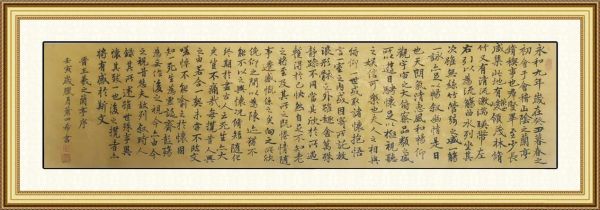 永和九年歲在癸丑暮春之
初會于會稽山陰之蘭亭
脩禊事也羣賢畢至少長
咸集此地有峻領茂林脩
竹又有清流激湍映帶左
右引以為流觴曲水列坐其
次雖無絲竹管弦之盛一觴
一詠亦足以暢敘幽情是日
也天朗氣清惠風和暢仰
觀宇宙之大俯察品類之盛
所以遊目騁懷足以極視聽
之娛信可樂也夫人之相與
俯仰一世或取諸懷抱悟
言一室之內或因寄所託放
浪形骸之外雖趣舍萬殊
靜躁不同當其欣於所遇
暫得於己快然自足不知老
之將至及其所之既惓情隨
事遷感慨係之矣向之所欣
俛仰之間為陳迹猶不
能不以之興懷況脩短隨化
終期於盡古人云死生亦大
矣豈不痛哉每攬昔人興
之由若合一契未嘗不臨文
嗟悼不能喻之於懷固
知一死生為虛誕齊彭殤
為妄作後之視今亦由今
之視昔悲夫故列敘時人
錄其所述雖世殊事異
懷其致一也後之攬者亦
將有感於斯文
晉王羲之蘭亭序
壬寅歲臘月蕭四希書